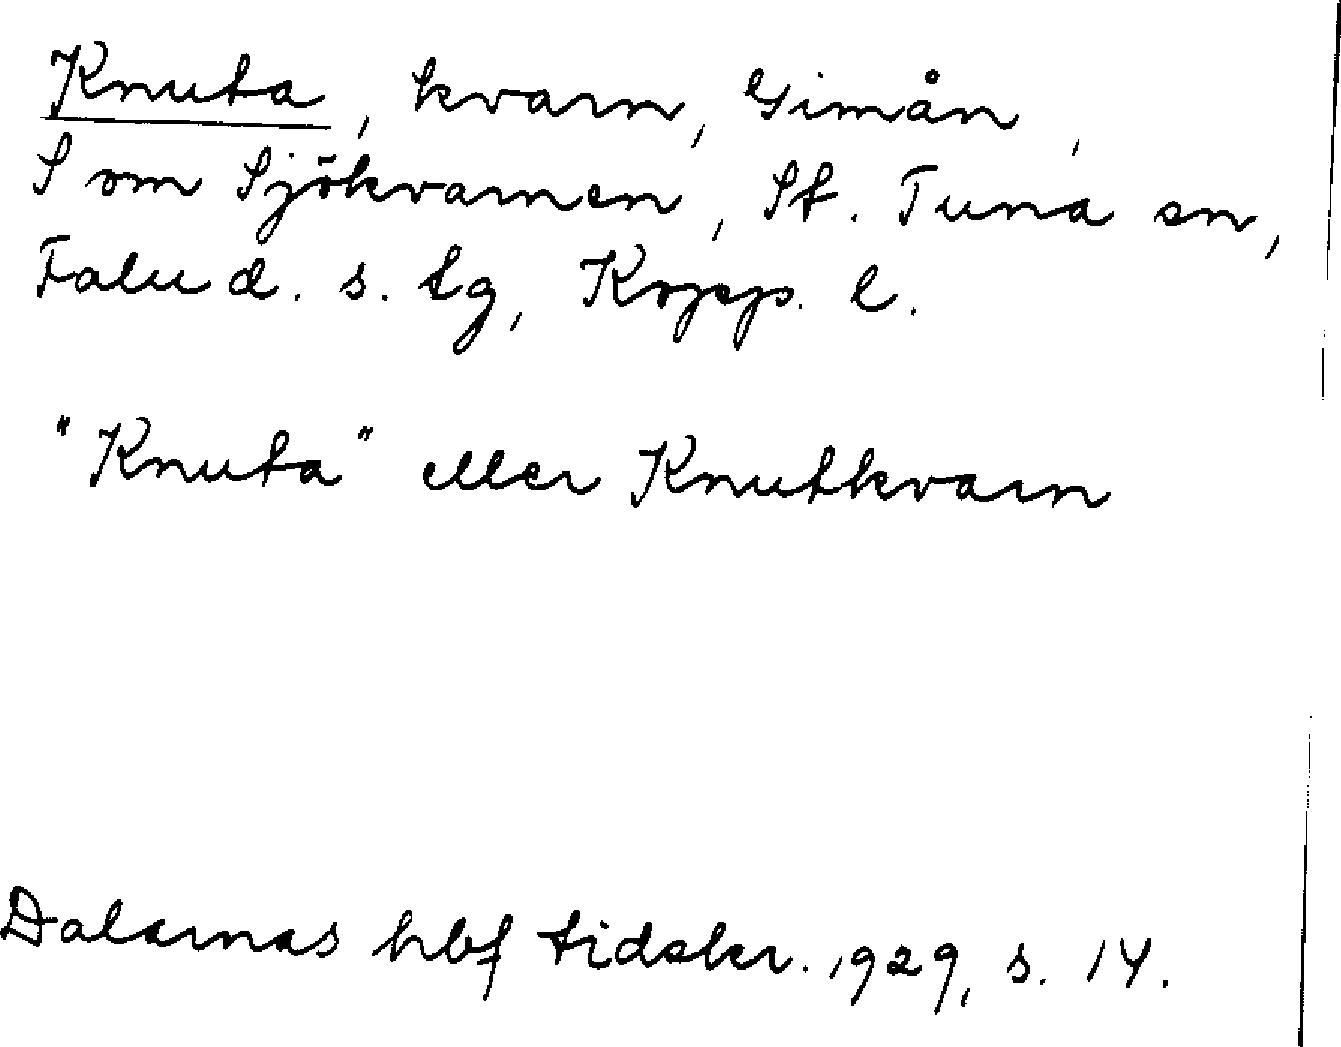 Knuta, kvarn, Gimån,
S om Sjökvarnen, St. Tuna sn,
Falu d. s. tg, Kopp. l.
"Knuta" eller Knutkvarn
Dalarnas hbf tidskr. 1929, s. 14.